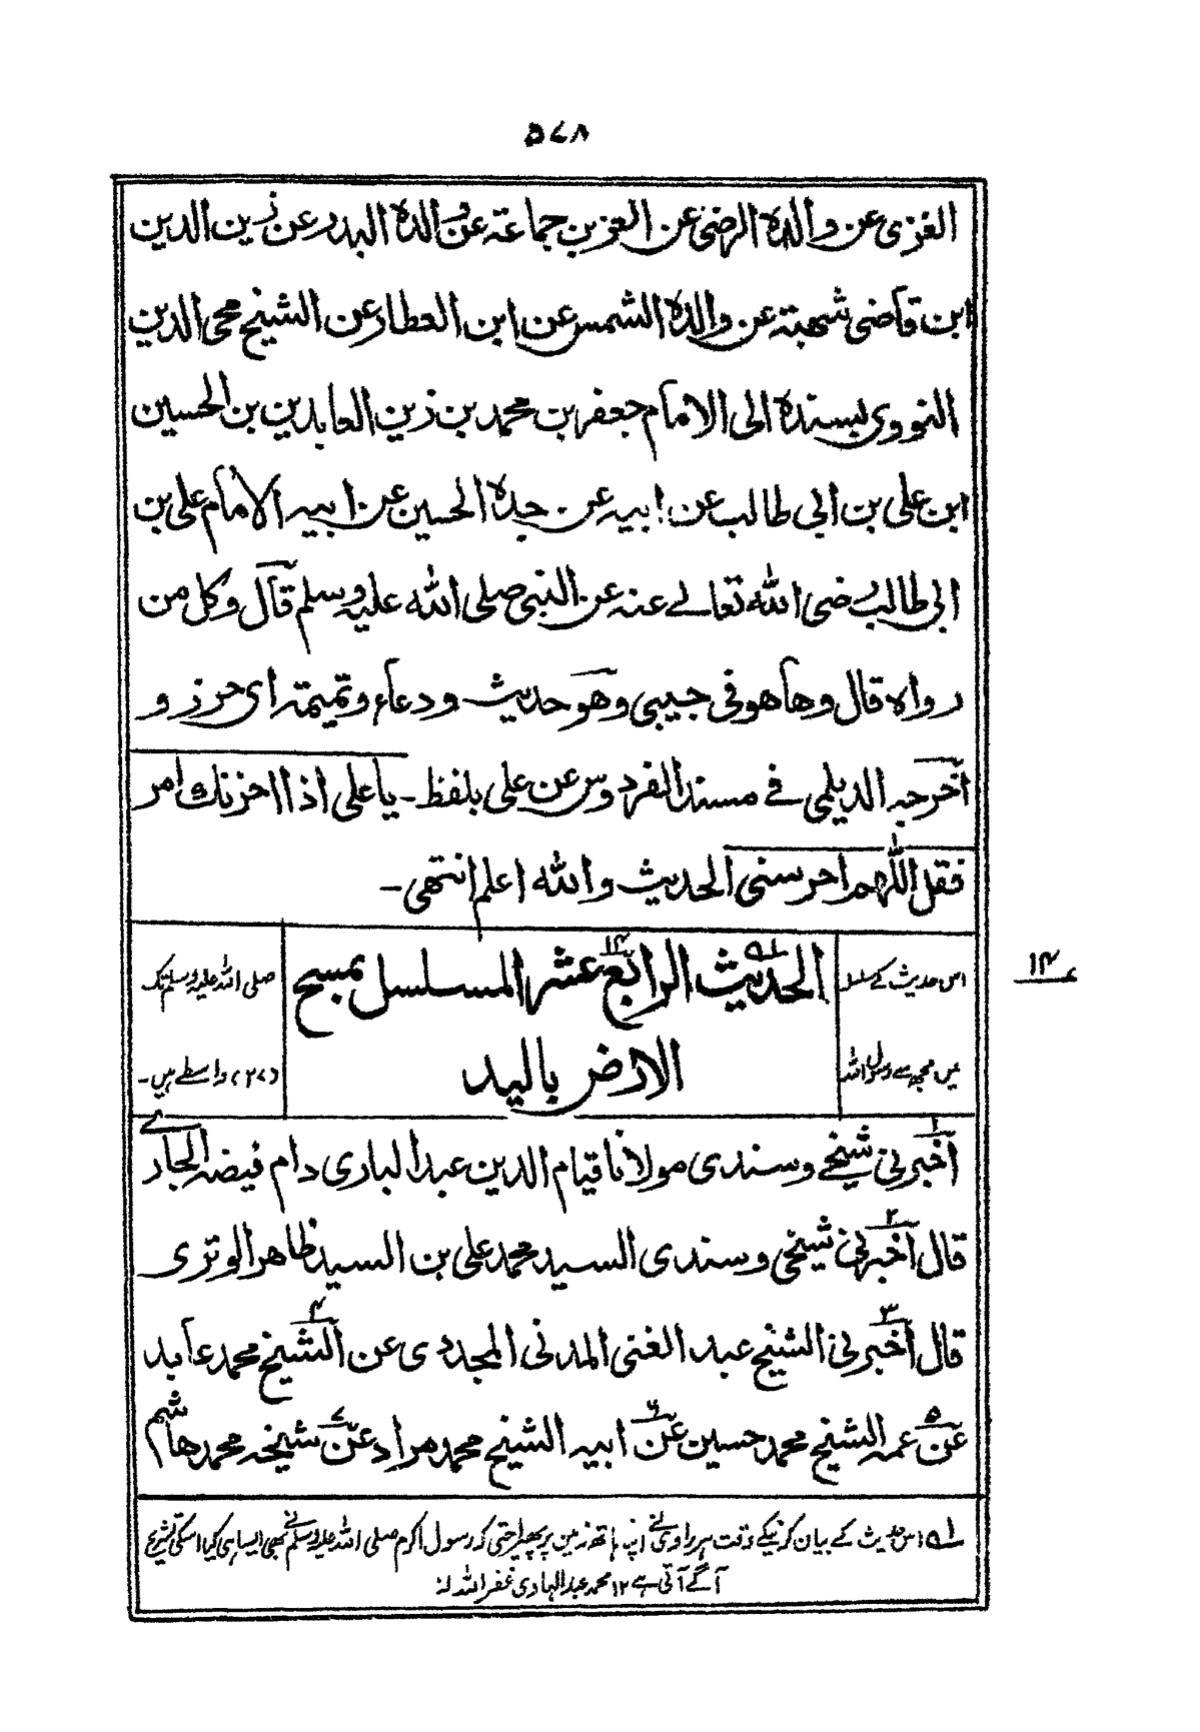 ۵۷۸
الغزی عن والده الرضی عن العز بن جماعة عن والده البدر عن زین الدین
ابن قاضی شهبة عن والده الشمس عن ابن العطار عن الشیخ محی الدین
النووی بسنده الی الامام جعفر بن محمد بن زین العابدین بن الحسین
ابن علی بن ابی طالب عن ابیه عن جده الحسین عن ابیه الامام علی بن
ابی طالب رضی الله تعالے عنه عن النبی صلی الله علیه وسلم قال وکل من
رواه قال وها هو فی جیبی وهو حدیث ودعاء وتمیمة ای حرز و
اخرجه الدیلمی فے مسند الفردوس عن علی بلفظ ـ یا علی اذا احزنك امر
فقل اللّٰهم احرسنی الحدیث والله اعلم انتهی ـ
۱۴
الحدیث الرابع عشر المسلسل بمسح
۱۴
الارض بالید
اس حدیث کے سلسلہ
میں مجھ سے رسول اللہ
صلی اللہ علیہ وسلم تک
(۲۷) واسطے ہیں۔
اخبرنی شیخے وسندی مولانا قیام الدین عبد الباری دام فیضه الجاری
قال اخبرنی شیخی وسندی السید محمد علی بن السید ظاهر الوتری
قال اخبرنی الشیخ عبد الغنی المدنی المجددی عن الشیخ محمد عابد
عن عمه الشیخ محمد حسین عن ابیه الشیخ محمد مراد عن شیخه محمد هاشم
لہ اس حدیث کے بیان کرنیکے وقت ہر راوی نے اپنا ہاتھ زمین پر پھیرا حتی کہ رسول اکرم صلی اللہ علیہ وسلم نے بھی ایسا ہی کیا اسکی تشریح
آگے آتی ہے ۱۲ محمد عبد الہادی غفر اللہ لہٗ